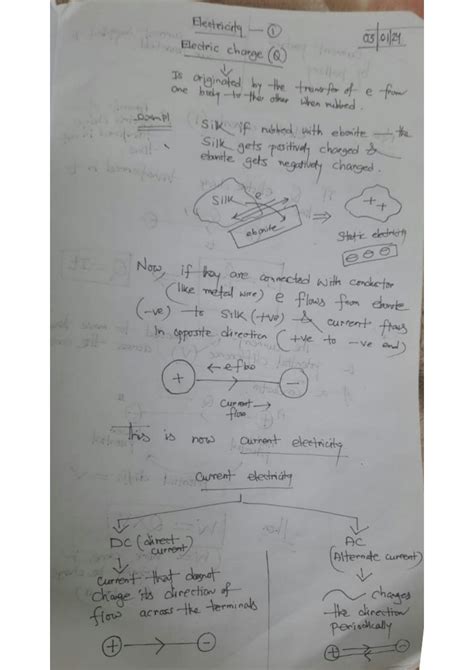 Electricity - 1
03/01/24
Electric charge (Q)
Is originated by the transfer of e from
one body to the other when rubbed.
Silk if rubbed with ebonite — the
Silk gets positively charged &
ebonite gets negatively charged.
Silk
e
ebonite
++
Static electricity
Now, if they are connected with conductor
(like metal wire) e flows from ebonite
(-ve) to silk (+ve) & current flows
In opposite direction (+ve to -ve end)
+
-
Current
flow
This is now current electricity
Current electricity
DC (direct
current)
AC
(Alternate current)
current that doesnot
change its direction of
flow across the terminals
changes
the direction
periodically
+
-
+
-